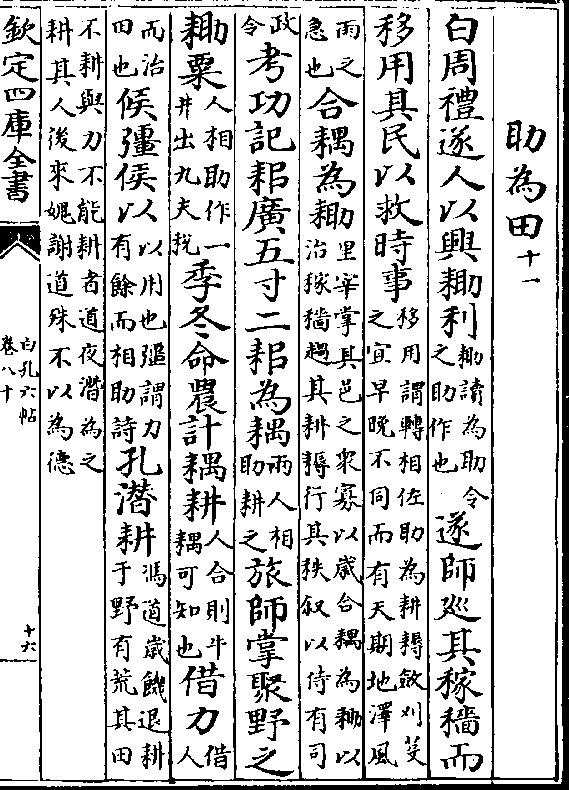 助為田十一
白周禮遂人以興耡利耡讀為助令之助作也遂師廵其稼穡而
移用其民以救時事移用謂轉相佐助為耕耨斂刈芟之宜早晚不同而有天期地澤風
雨之急也合耦為耡里宰掌其邑之衆寡以歲合耦為耡以治稼穡趨其耕耨行其秩叙以待有司
政令考功記耜廣五寸二耜為耦兩人相助耕之旅師掌聚野之
耡粟人相助作一井出九夫税季冬命農計耦耕人合則牛耦可知也借力借人
而治田也侯彊侯以以用也彊謂力有餘而相助詩孔濳耕馮道歲饑退耕于野有荒其田
不耕與力不能耕者道夜濳為之耕其人後來媿謝道殊不以為德
欽定四庫全書
白孔六帖
卷八十
十六